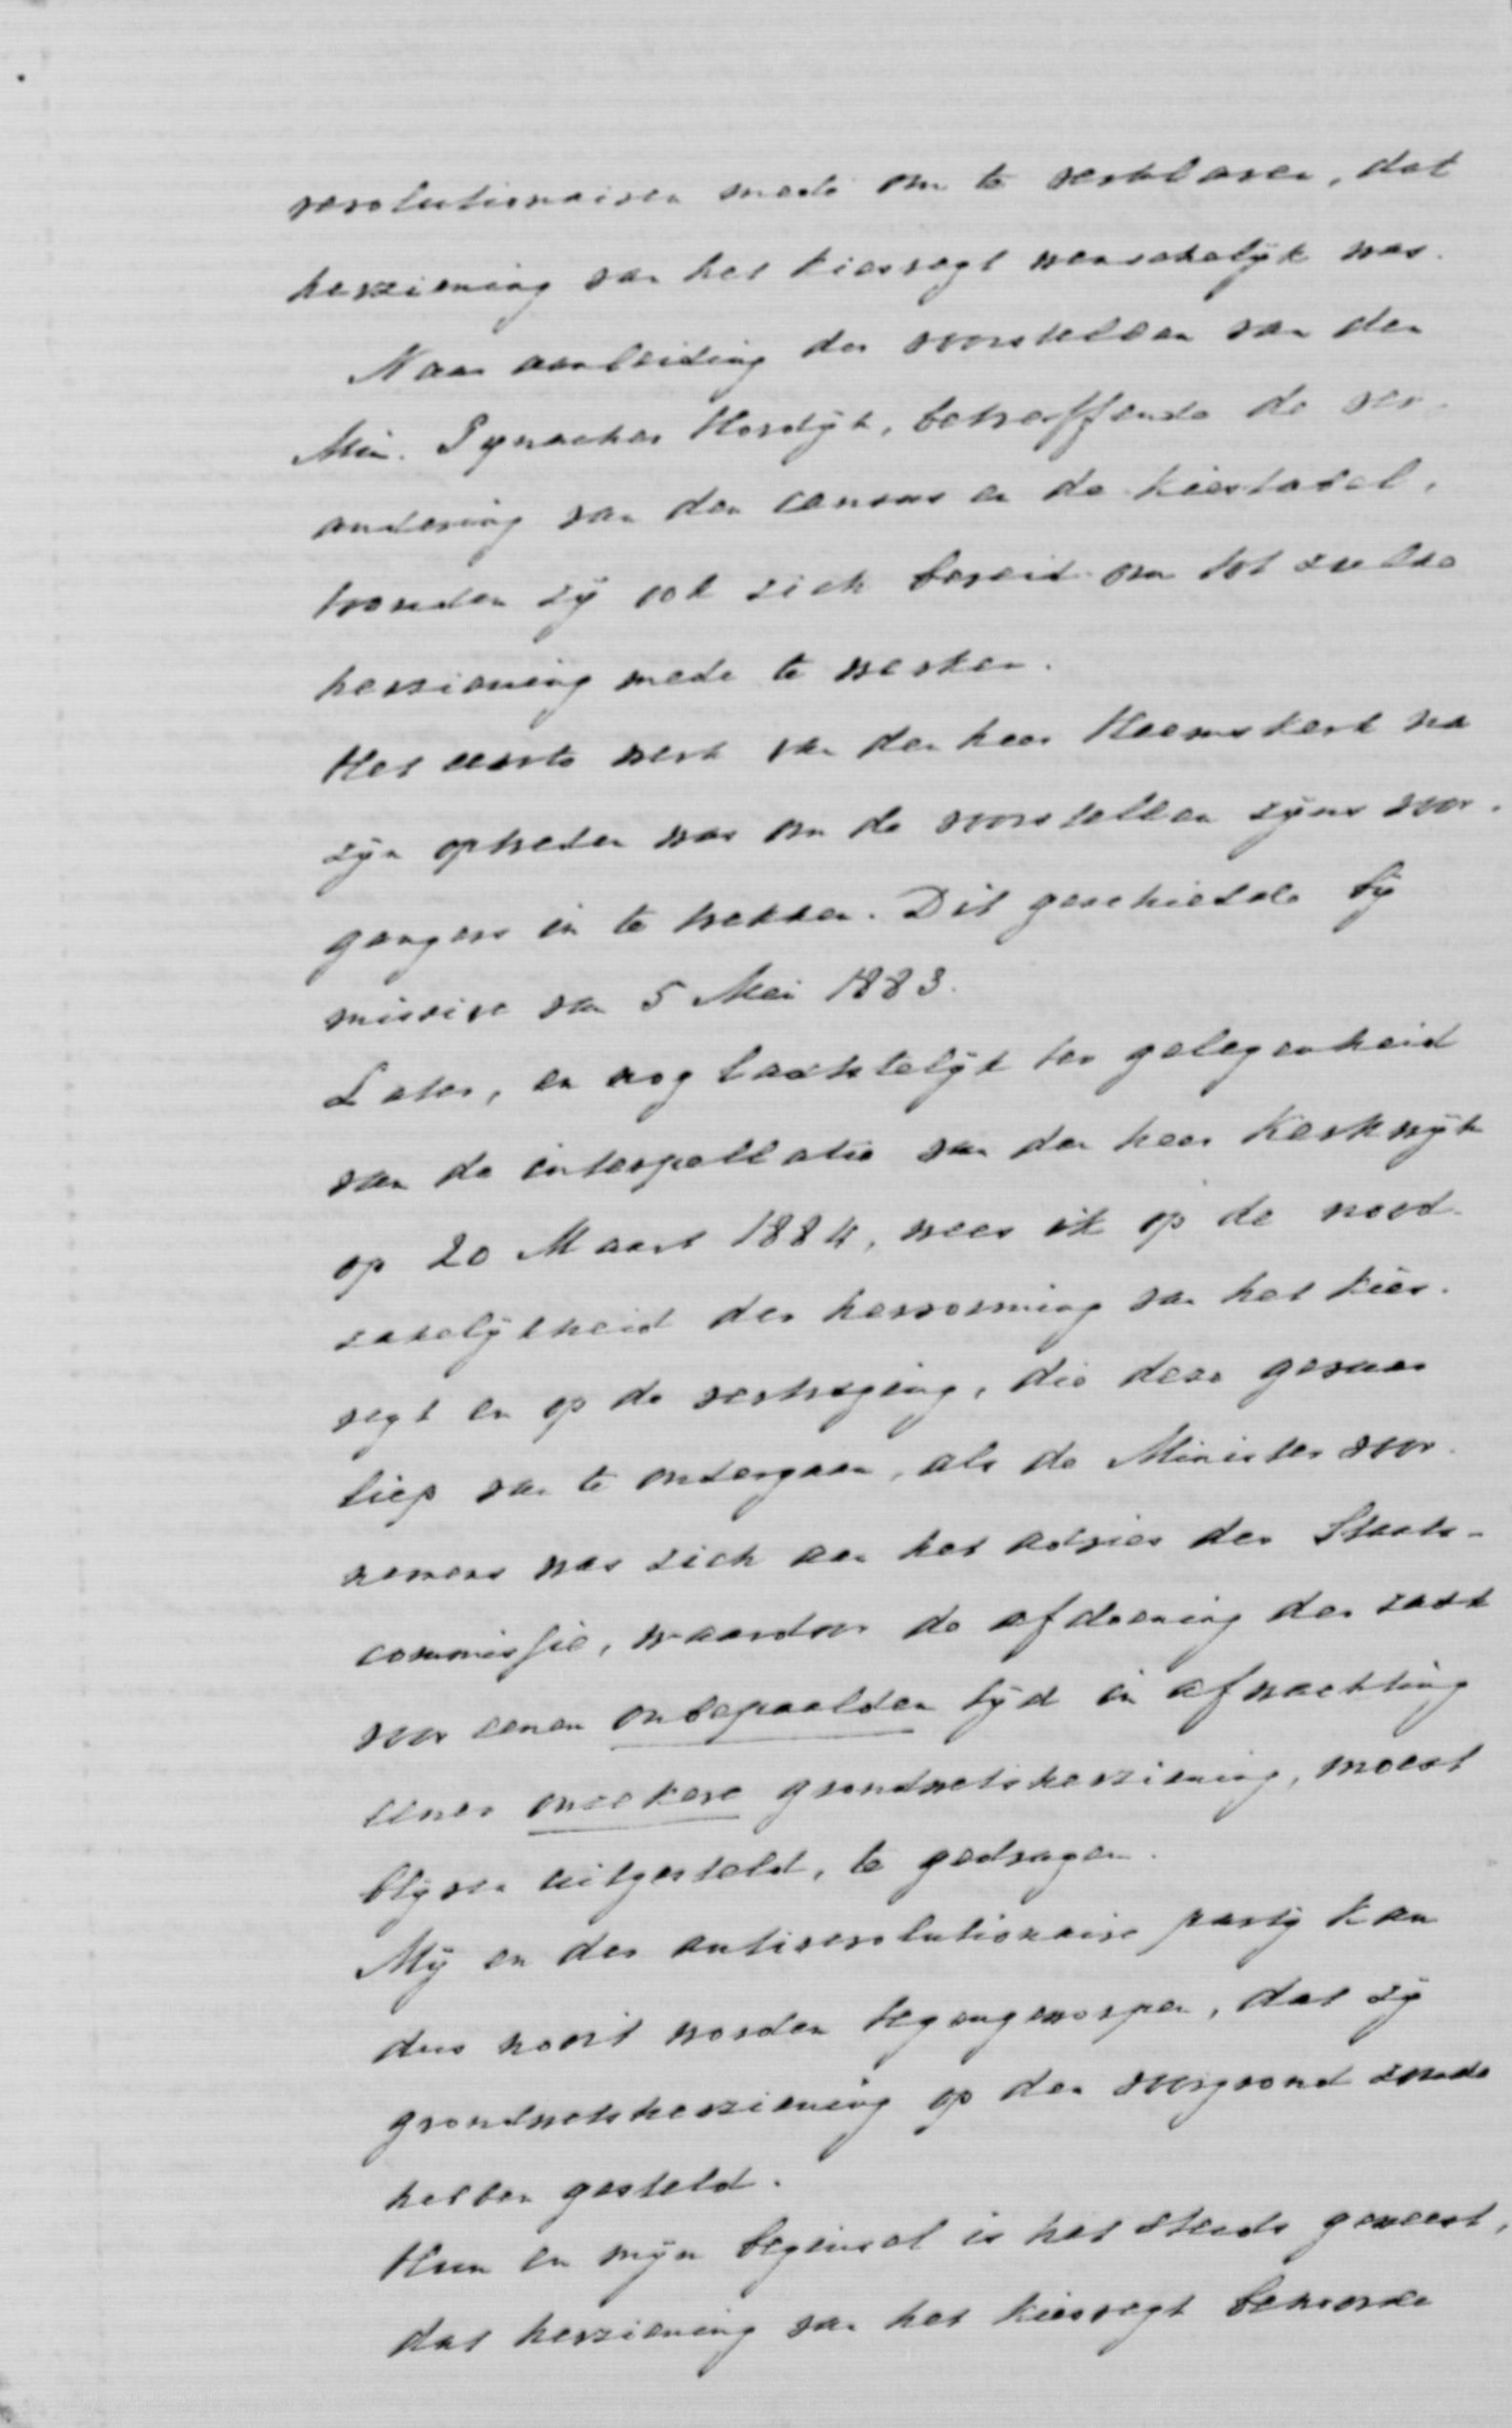 revolutionairen mede om te verklaren, dat
herziening van het kiesregt wenschelijk was.
Naar aanleiding der voorstellen van den
Min. Pynacker Hordijk, betreffende de ver-
andering van den census en de kiestabel,
toonden zij ook zich bereid om tot zulke
herziening mede te werken.
Het eerste werk van den heer Heemskerk na
zijn optreden was om de voorstellen zijns voor-
gangers in te trekken. Dit geschiedde bij
missive van 5 Mei 1883.
Later, en nog laatstelijk ter gelegenheid
van de interpellatie van den heer Kerkwijk
op 20 Maart 1884, wees ik op de nood-
zakelijkheid der hervorming van het kies-
regt en op de vertraging, die deze gevaar
liep van te ondergaan, als de Minister voor-
nemens was zich aan het advies der Staats-
commissie, waardoor de afdoening der zaak
voor eenen onbepaalden tijd in afwachting
eener onzekere grondwetsherziening, moest
blijven uitgesteld, te gedragen.
Mij en der antirevolutionaire partij kan
dus nooit worden tegengeworpen, dat zij
grondwetsherziening op den voorgrond zoude
hebben gesteld.
Hun en mijn beginsel is het steeds geweest,
dat herziening van het kiesregt behoorde